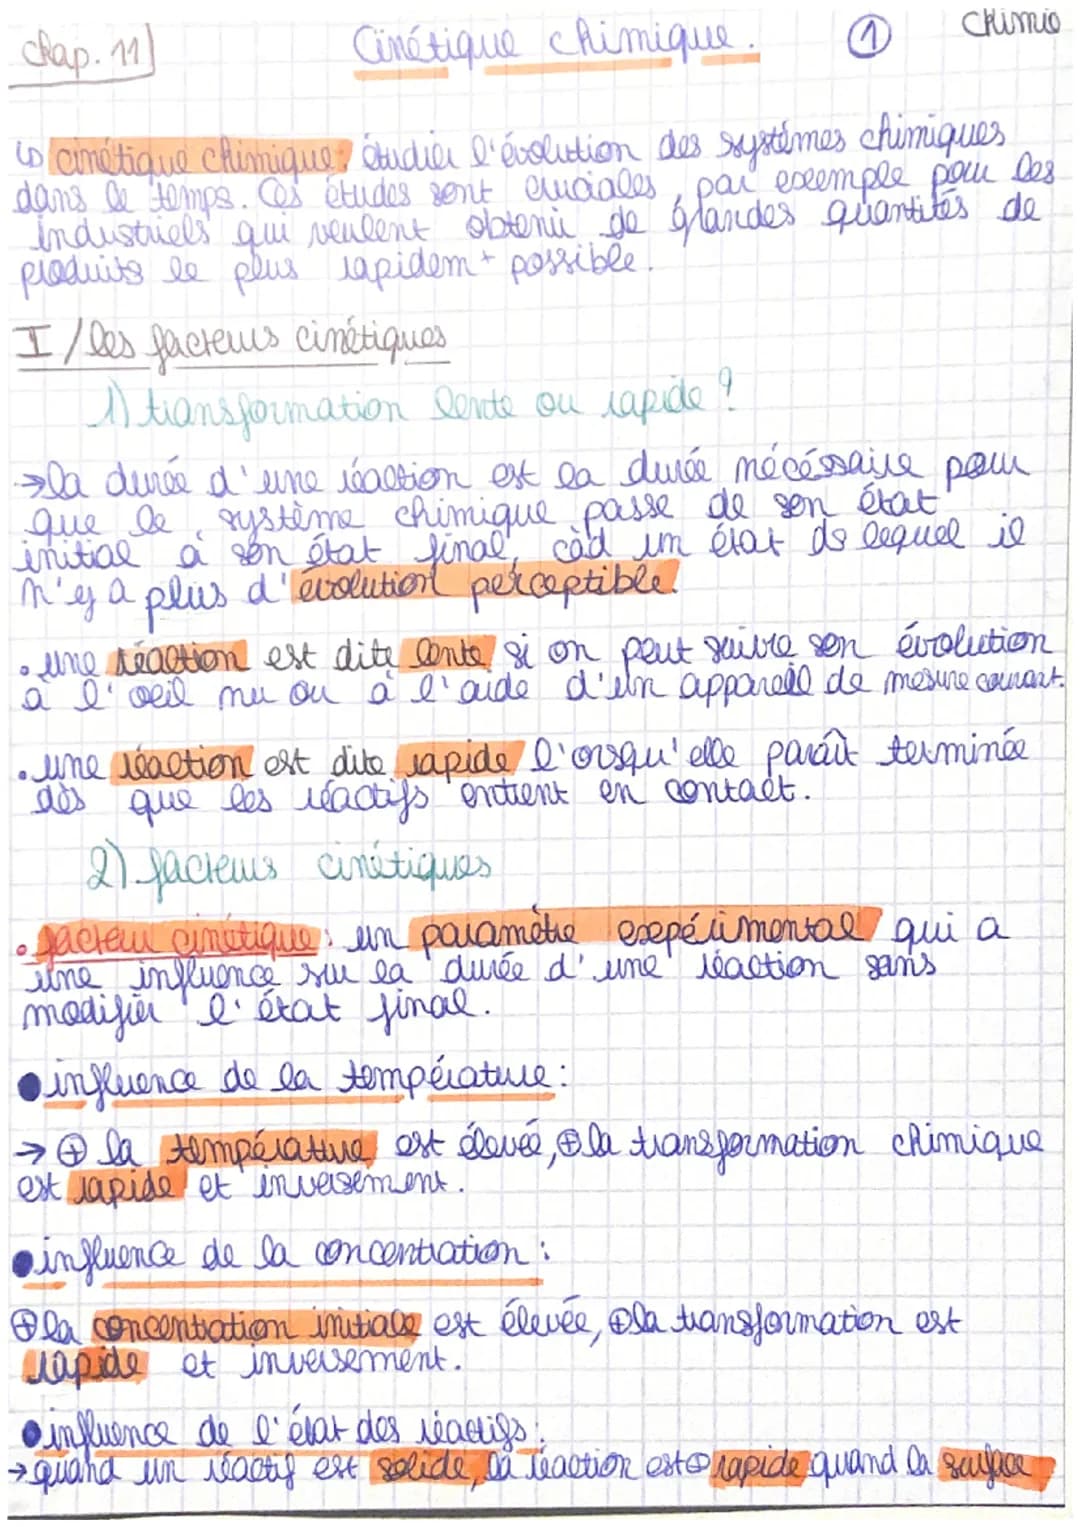 Chap. 11
Cinétique chimique.
1
Chimie
↳ cinétique chimique: étudier l'évolution des systèmes chimiques
dans le temps. Ces études sont cruciales, par exemple pour les
industriels qui veulent obtenir de grandes quantités de
produits le plus rapidemt possible.
I / les facteurs cinétiques
1) transformation lente ou rapide ?
→ la durée d'une réaction est la durée nécéssaire pour
que le système chimique passe de son état
initial à son état final, càd un état ds lequel il
n'y a plus d'évolution perceptible.
• une réaction est dite lente si on peut suivre son évolution
à l'oeil nu ou à l'aide d'un appareil de mesure courant.
• une réaction est dite rapide l'orsqu'elle paraît terminée
dès que les réactifs entrent en contact.
2) facteurs cinétiques
• facteur cinétique: un paramètre expérimental qui a
une influence sur la durée d'une réaction sans
modifier l'état final.
● influence de la température :
→ ⊕ la température est élevée, ⊕ la transformation chimique
est rapide et inversement.
● influence de la concentration :
⊕ la concentration initiale est élevée, ⊕ la transformation est
rapide et inversement.
● influence de l'état des réactifs :
→ quand un réactif est solide, la réaction est ⊕ rapide quand la surface